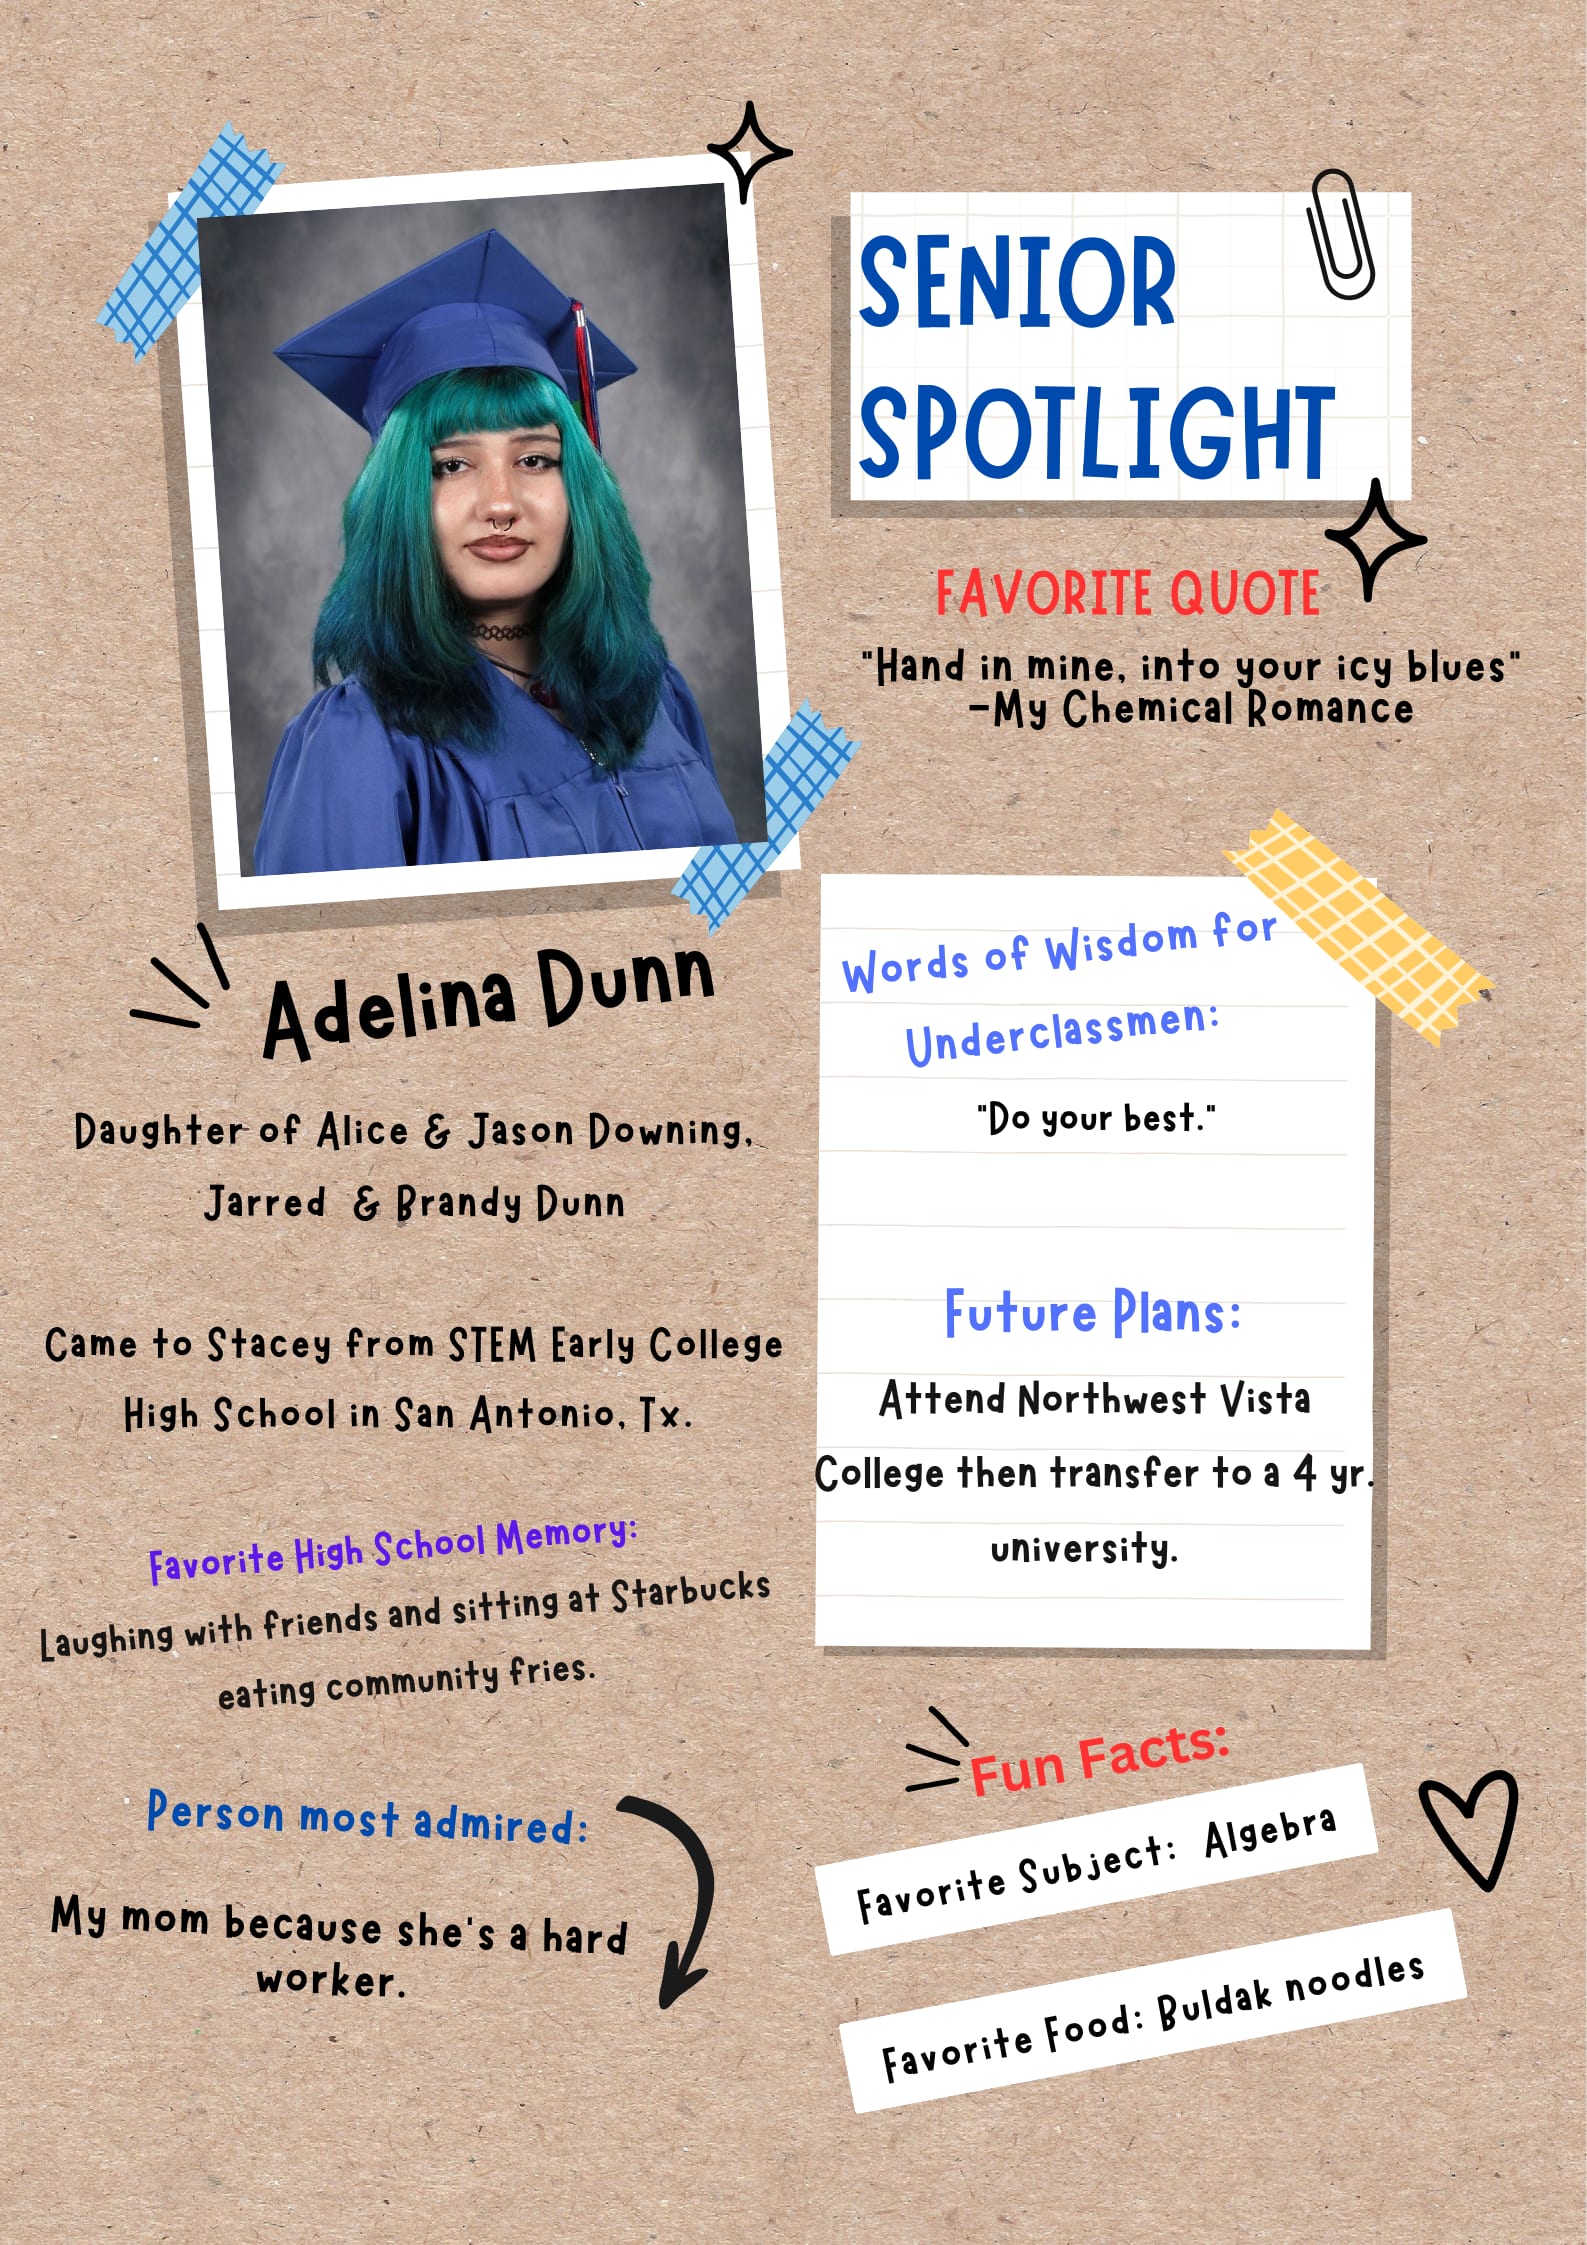 SENIOR
SPOTLIGHT
FAVORITE QUOTE
"Hand in mine, into your icy blues"
-My Chemical Romance
Adelina Dunn
Daughter of Alice & Jason Downing,
Jarred & Brandy Dunn
Came to Stacey from STEM Early College
High School in San Antonio, Tx.
Favorite High School Memory:
Laughing with friends and sitting at Starbucks
eating community fries.
Person most admired:
My mom because she's a hard
worker.
Words of Wisdom for
Underclassmen:
"Do your best."
Future Plans:
Attend Northwest Vista
College then transfer to a 4 yr.
university.
Fun Facts:
Favorite Subject: Algebra
Favorite Food: Buldak noodles